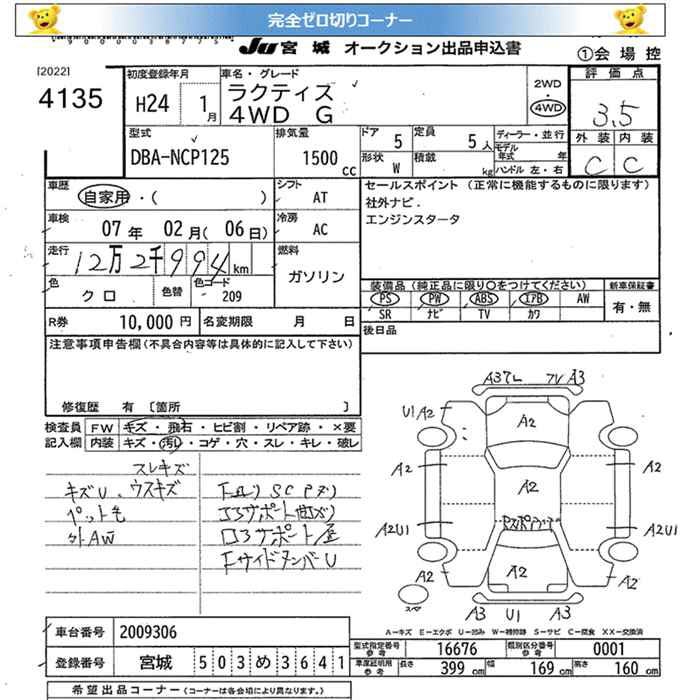 完全ゼロ切りコーナー
JU 宮城 オークション出品申込書
①会場控
[2022]
4135
初度登録年月
H24 1月
車名・グレード
ラクティス
4WD G
2WD
・
4WD
評価点
3.5
外装 内装
C C
型式
DBA-NCP125
排気量
1500 cc
ドア 5
定員 5人
形状 W
積載 kg
ディーラー・並行
モデル年式 年
ハンドル 左・右
車歴
自家用・( )
シフト AT
車検 07年 02月(06日)
冷房 AC
走行 12万2千994km
燃料 ガソリン
色 クロ
色替
色コード 209
R券 10,000円
名変期限 月 日
セールスポイント (正常に機能するものに限ります)
社外ナビ.
エンジンスタータ
装備品(純正品に限り○をつけてください)
新車保証書
PS PW ABS エアB AW
SR ナビ TV カワ
有・無
後日品
注意事項申告欄(不具合内容等は具体的に記入して下さい)
修復歴 有 〔箇所 〕
検査員 FW キズ・飛石・ヒビ割・リペア跡・×要
記入欄 内装 キズ・汚レ・コゲ・穴・スレ・キレ・破レ
スレキズ
キズU、ウスキズ
ペット毛
外AW
コアサポート曲がり
コアサポート
FサイドメンバーU
A3 7L 7V A3
U1 A2
A2
A2
A2
A2
A2
A2U1
A2U1
A2
A2
A2
スペア
A3 U1 A3
A-キズ E-エクボ U-凹み W-補修跡 S-サビ C-腐食 XX-交換済
車台番号 2009306
登録番号 宮城 503め3641
型式指定番号 参考 16676
類別区分番号 参考 0001
車庫証明用 参考 長さ 399cm 幅 169cm 高さ 160cm
希望出品コーナー(コーナーは各会場により異なります。)